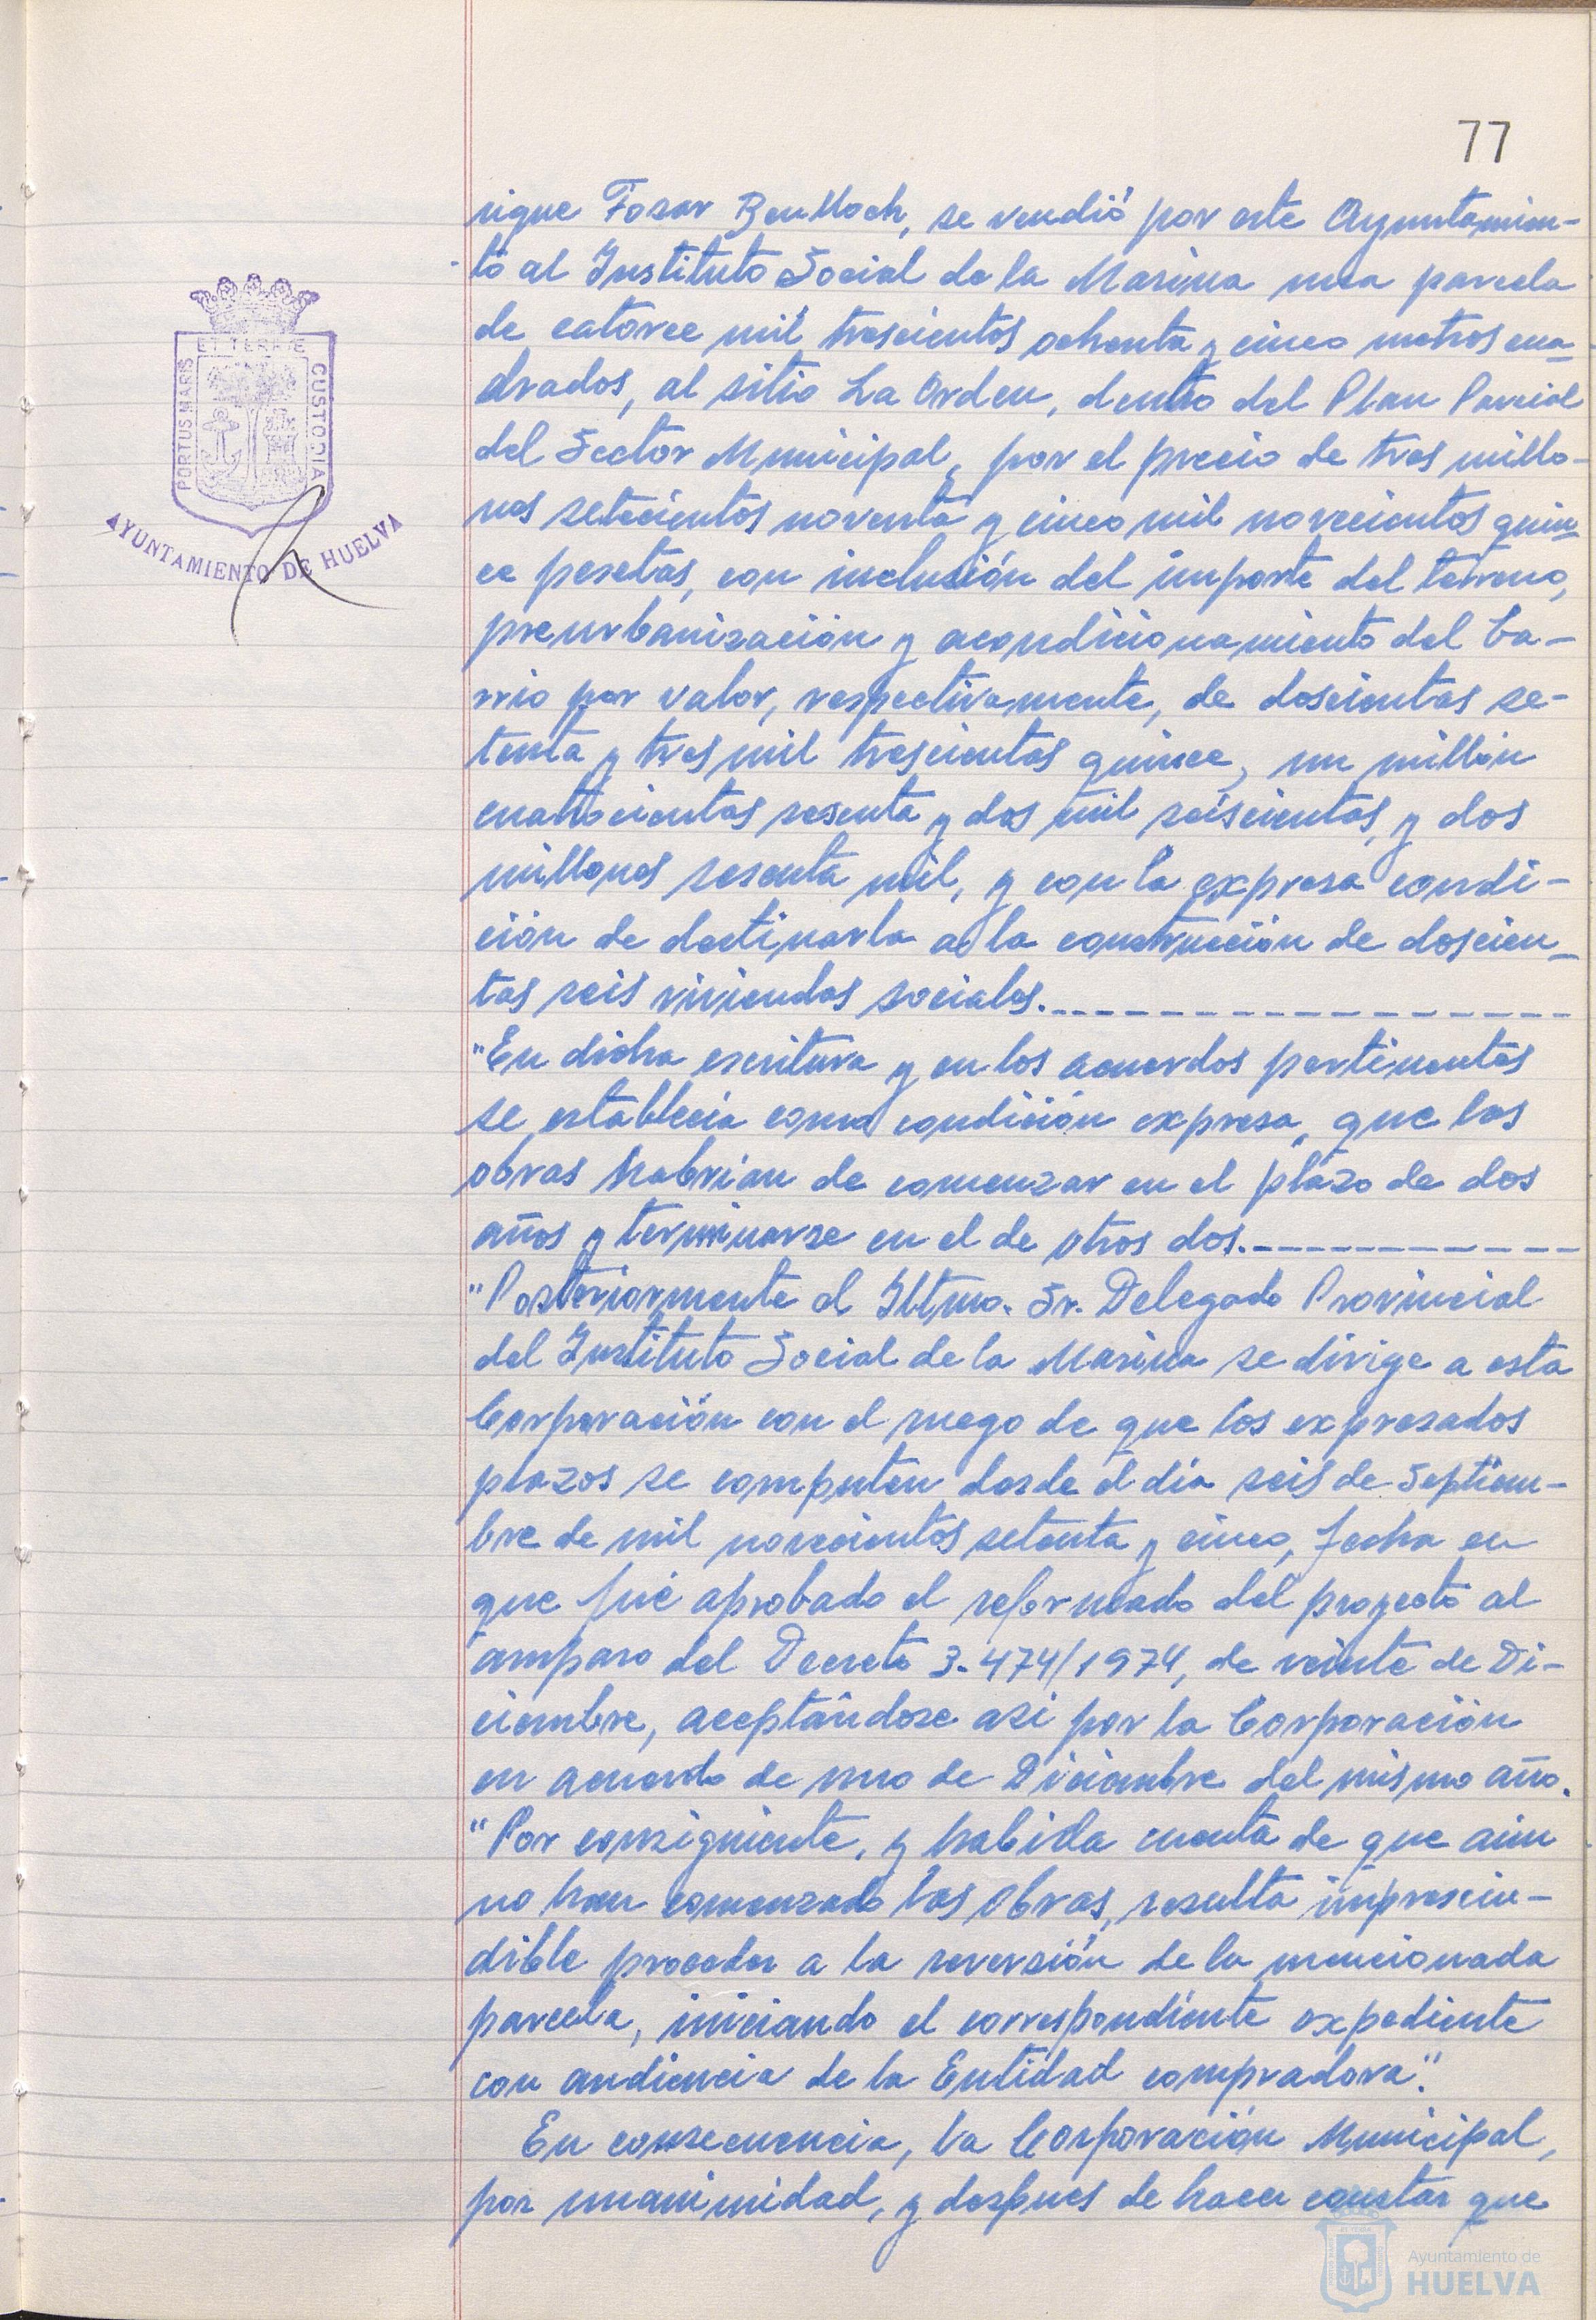 77
rique Fosar Benlloch, se vendió por este Ayuntamien-
to al Instituto Social de la Marina una parcela
de catorce mil trescientos ochenta y cinco metros cua-
drados, al sitio La Orden, dentro del Plan Parcial
del Sector Municipal, por el precio de tres millo-
nes setecientos noventa y cinco mil novecientos quin-
ce pesetas, con inclusión del importe del terreno,
preurbanización y acondicionamiento del ba-
rrio por valor, respectivamente, de doscientas se-
tenta y tres mil trescientas quince, un millón
cuatrocientas sesenta y dos mil seiscientas, y dos
millones sesenta mil, y con la expresa condi-
ción de destinarla a la construcción de doscien-
tas seis viviendas sociales.
"En dicha escritura y en los acuerdos pertinentes
se establecía como condición expresa, que las
obras habrían de comenzar en el plazo de dos
años y terminarse en el de otros dos.
"Posteriormente el Iltmo. Sr. Delegado Provincial
del Instituto Social de la Marina se dirige a esta
Corporación con el ruego de que los expresados
plazos se computen desde el día seis de Septiem-
bre de mil novecientos setenta y cinco, fecha en
que fué aprobado el reformado del proyecto al
amparo del Decreto 3.474/1974, de veinte de Di-
ciembre, aceptándose asi por la Corporación
en acuerdo de uno de Diciembre del mismo año.
"Por consiguiente, y habida cuenta de que aún
no han comenzado las obras, resulta imprescin-
dible proceder a la reversión de la mencionada
parcela, iniciando el correspondiente expediente
con audiencia de la Entidad compradora".
En consecuencia, la Corporación Municipal,
por unanimidad, y despues de hacer constar que
PORTUS MARIS
ET TERRAE
CUSTODIA
AYUNTAMIENTO DE HUELVA
Ayuntamiento de
HUELVA